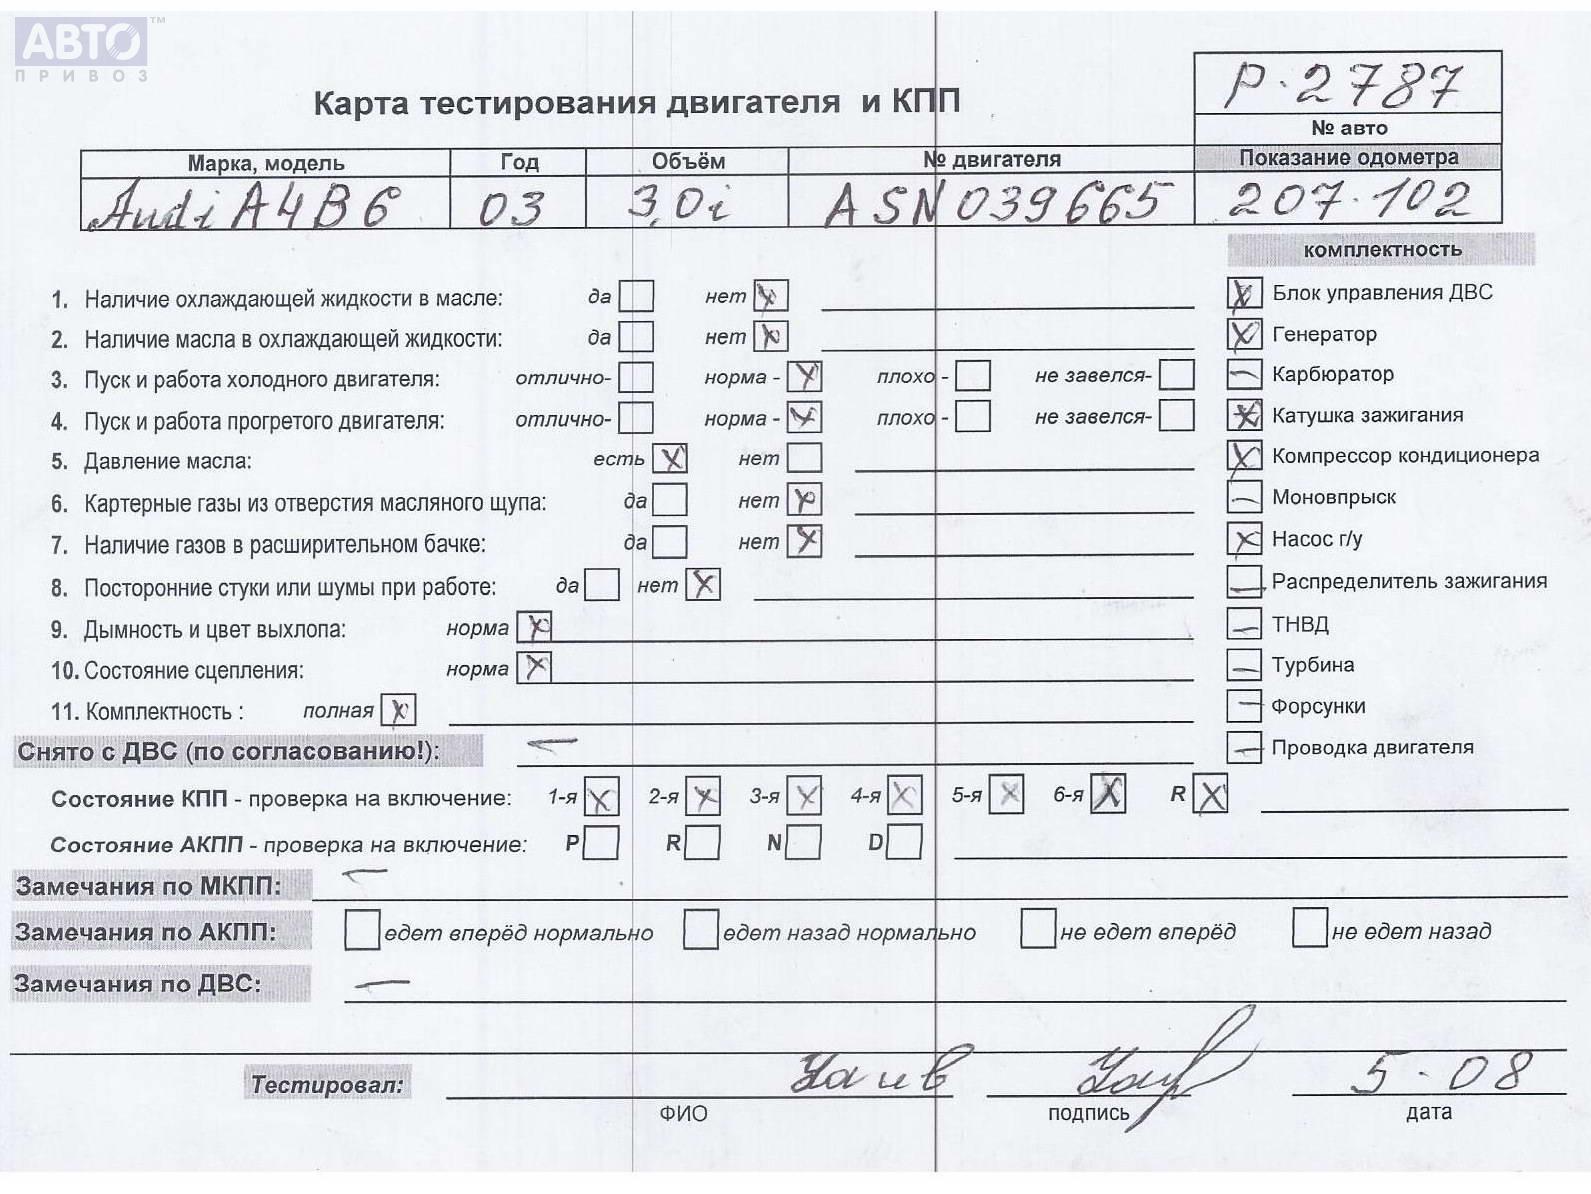 АВТО™
ПРИВОЗ
Р-2787
Карта тестирования двигателя и КПП
№ авто
Марка, модель Год Объём № двигателя Показание одометра
Audi A4B6 03 3,0i ASN039665 207.102
комплектность
1. Наличие охлаждающей жидкости в масле: да нет X
X Блок управления ДВС
2. Наличие масла в охлаждающей жидкости: да нет X
X Генератор
3. Пуск и работа холодного двигателя: отлично- норма - X плохо - не завелся-
– Карбюратор
4. Пуск и работа прогретого двигателя: отлично- норма - X плохо - не завелся-
X Катушка зажигания
5. Давление масла: есть X нет
X Компрессор кондиционера
6. Картерные газы из отверстия масляного щупа: да нет X
– Моновпрыск
7. Наличие газов в расширительном бачке: да нет X
X Насос г/у
8. Посторонние стуки или шумы при работе: да нет X
– Распределитель зажигания
9. Дымность и цвет выхлопа: норма X
– ТНВД
10. Состояние сцепления: норма X
– Турбина
11. Комплектность : полная X
– Форсунки
Снято с ДВС (по согласованию!): –
– Проводка двигателя
Состояние КПП - проверка на включение: 1-я X 2-я X 3-я X 4-я X 5-я X 6-я X R X
Состояние АКПП - проверка на включение: P R N D
Замечания по МКПП: –
Замечания по АКПП: едет вперёд нормально едет назад нормально не едет вперёд не едет назад
Замечания по ДВС: –
Тестировал: 5-08
ФИО подпись дата